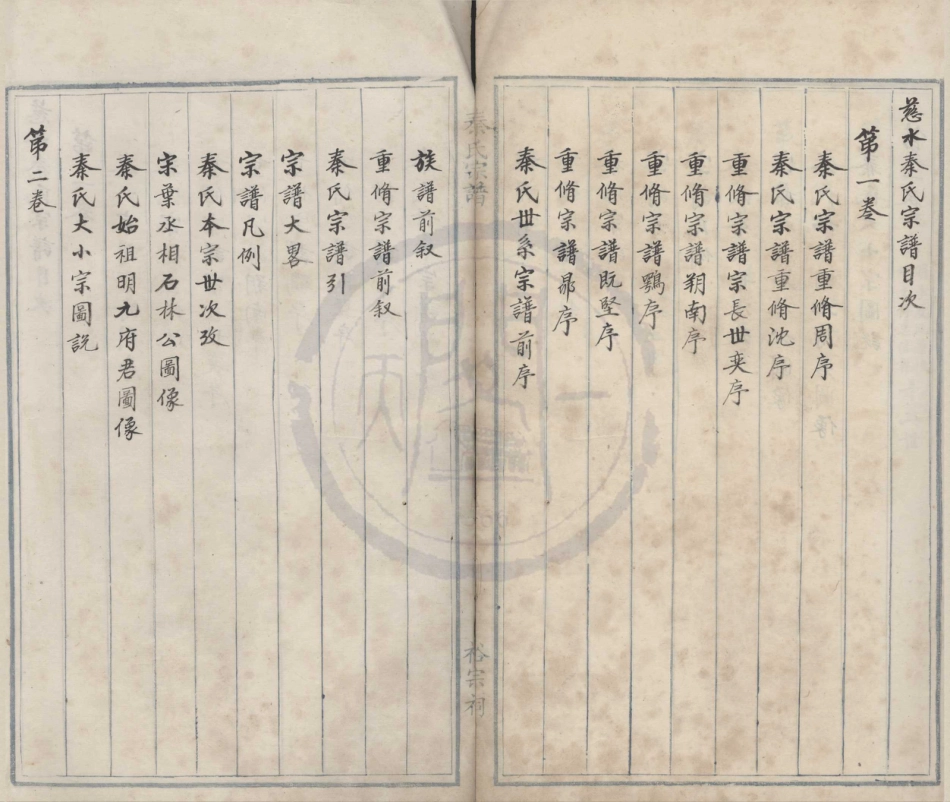 慈水秦氏宗譜目次
第一卷
秦氏宗譜重脩周序
秦氏宗譜重脩沈序
重脩宗譜宗長世奕序
重脩宗譜朔南序
重脩宗譜鶚序
重脩宗譜既堅序
重脩宗譜鼎序
秦氏世系宗譜前序
秦氏宗譜
裕宗祠
族譜前叙
重脩宗譜前叙
秦氏宗譜引
宗譜大畧
宗譜凡例
秦氏本宗世次攷
宗葉丞相石林公圖像
秦氏始祖明九府君圖像
秦氏大小宗圖説
第二卷